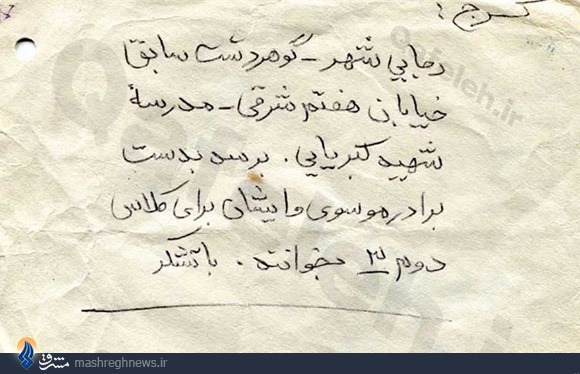 کرج:
رجایی شهر - گوهردشت سابق
خیابان هفتم شرقی - مدرسهٔ
شهید کبریایی. برسد بدست
برادر موسوی وایشان برای کلاس
دوم ۳ بخوانند. باتشکر
مشرق mashreghnews.ir